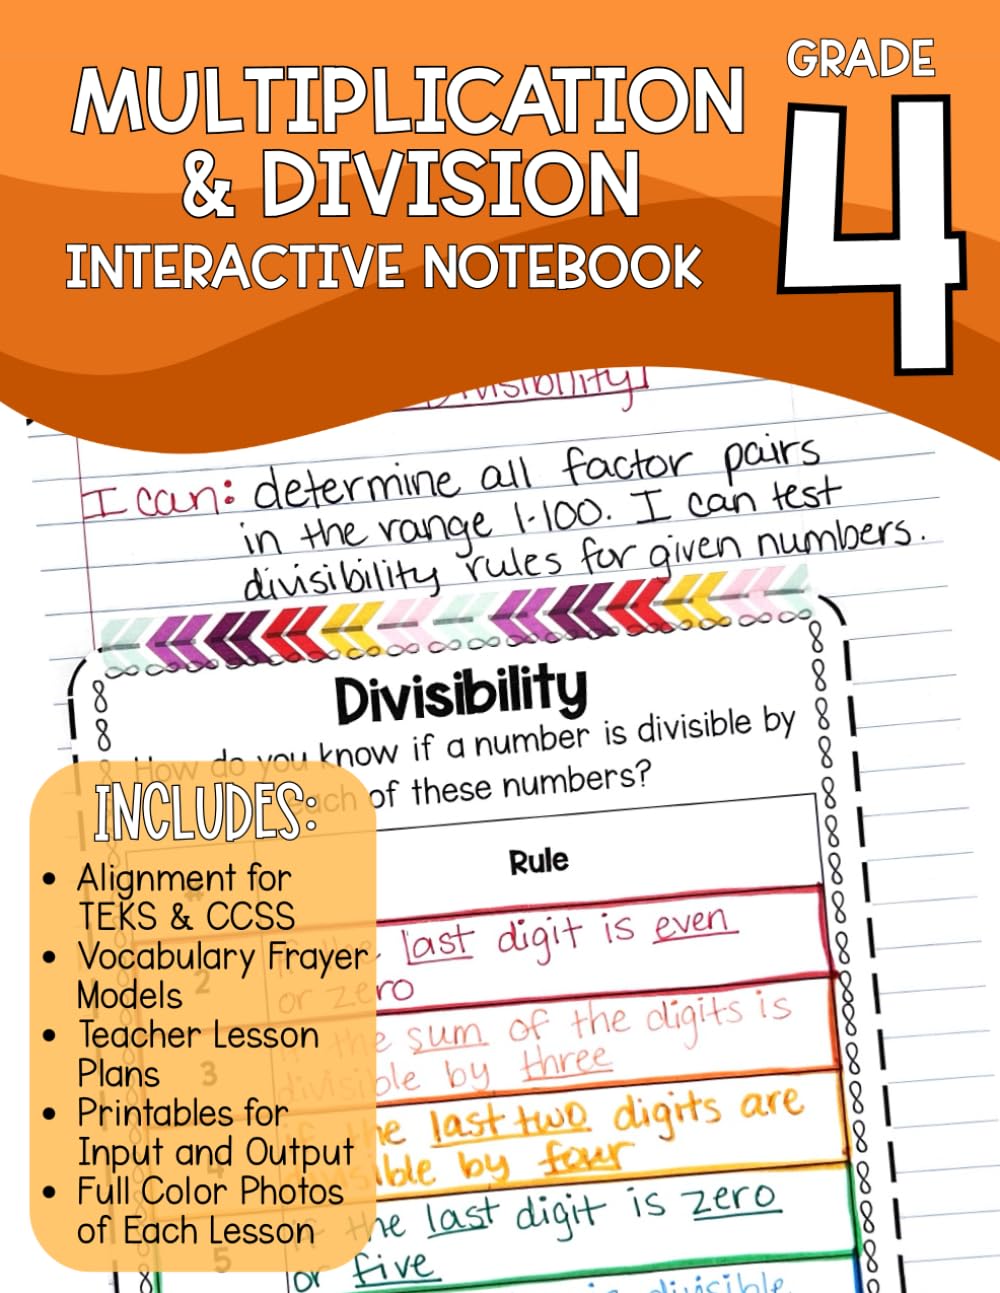 GRADE
4
MULTIPLICATION
& DIVISION
INTERACTIVE NOTEBOOK
Divisibility
I can: determine all factor pairs
in the range 1-100. I can test
divisibility rules for given numbers.
Divisibility
How do you know if a number is divisible by
each of these numbers?
Rule
INCLUDES:
• Alignment for
TEKS & CCSS
• Vocabulary Frayer
Models
• Teacher Lesson
Plans
• Printables for
Input and Output
• Full Color Photos
of Each Lesson
2
last digit is even
or zero
3
the sum of the digits is
divisible by three
4
if the last two digits are
divisible by four
5
if the last digit is zero
or five
is divisible